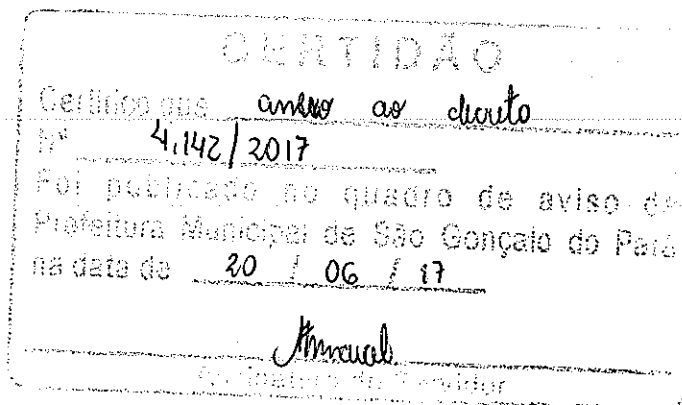 CERTIDÃO
Certifico que anexo ao decreto
Nº 4.142/2017
Foi publicado no quadro de aviso da
Prefeitura Municipal de São Gonçalo do Pará
na data de 20 / 06 / 17
Assinatura do Servidor